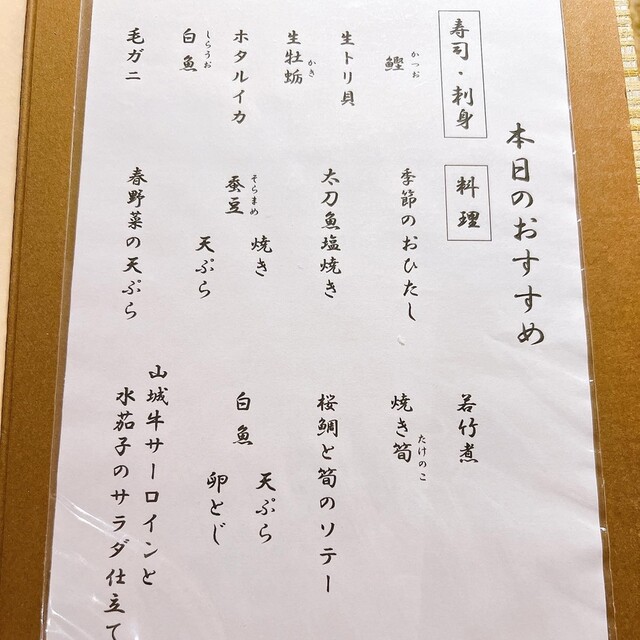 本日のおすすめ
寿司・刺身
鰹
かつお
生トリ貝
生牡蛎
かき
ホタルイカ
白魚
しらうお
毛ガニ
料理
季節のおひたし
太刀魚塩焼き
蚕豆
そらまめ
焼き
天ぷら
春野菜の天ぷら
若竹煮
焼き筍
たけのこ
桜鯛と筍のソテー
白魚
天ぷら
卵とじ
山城牛サーロインと
水茄子のサラダ仕立て